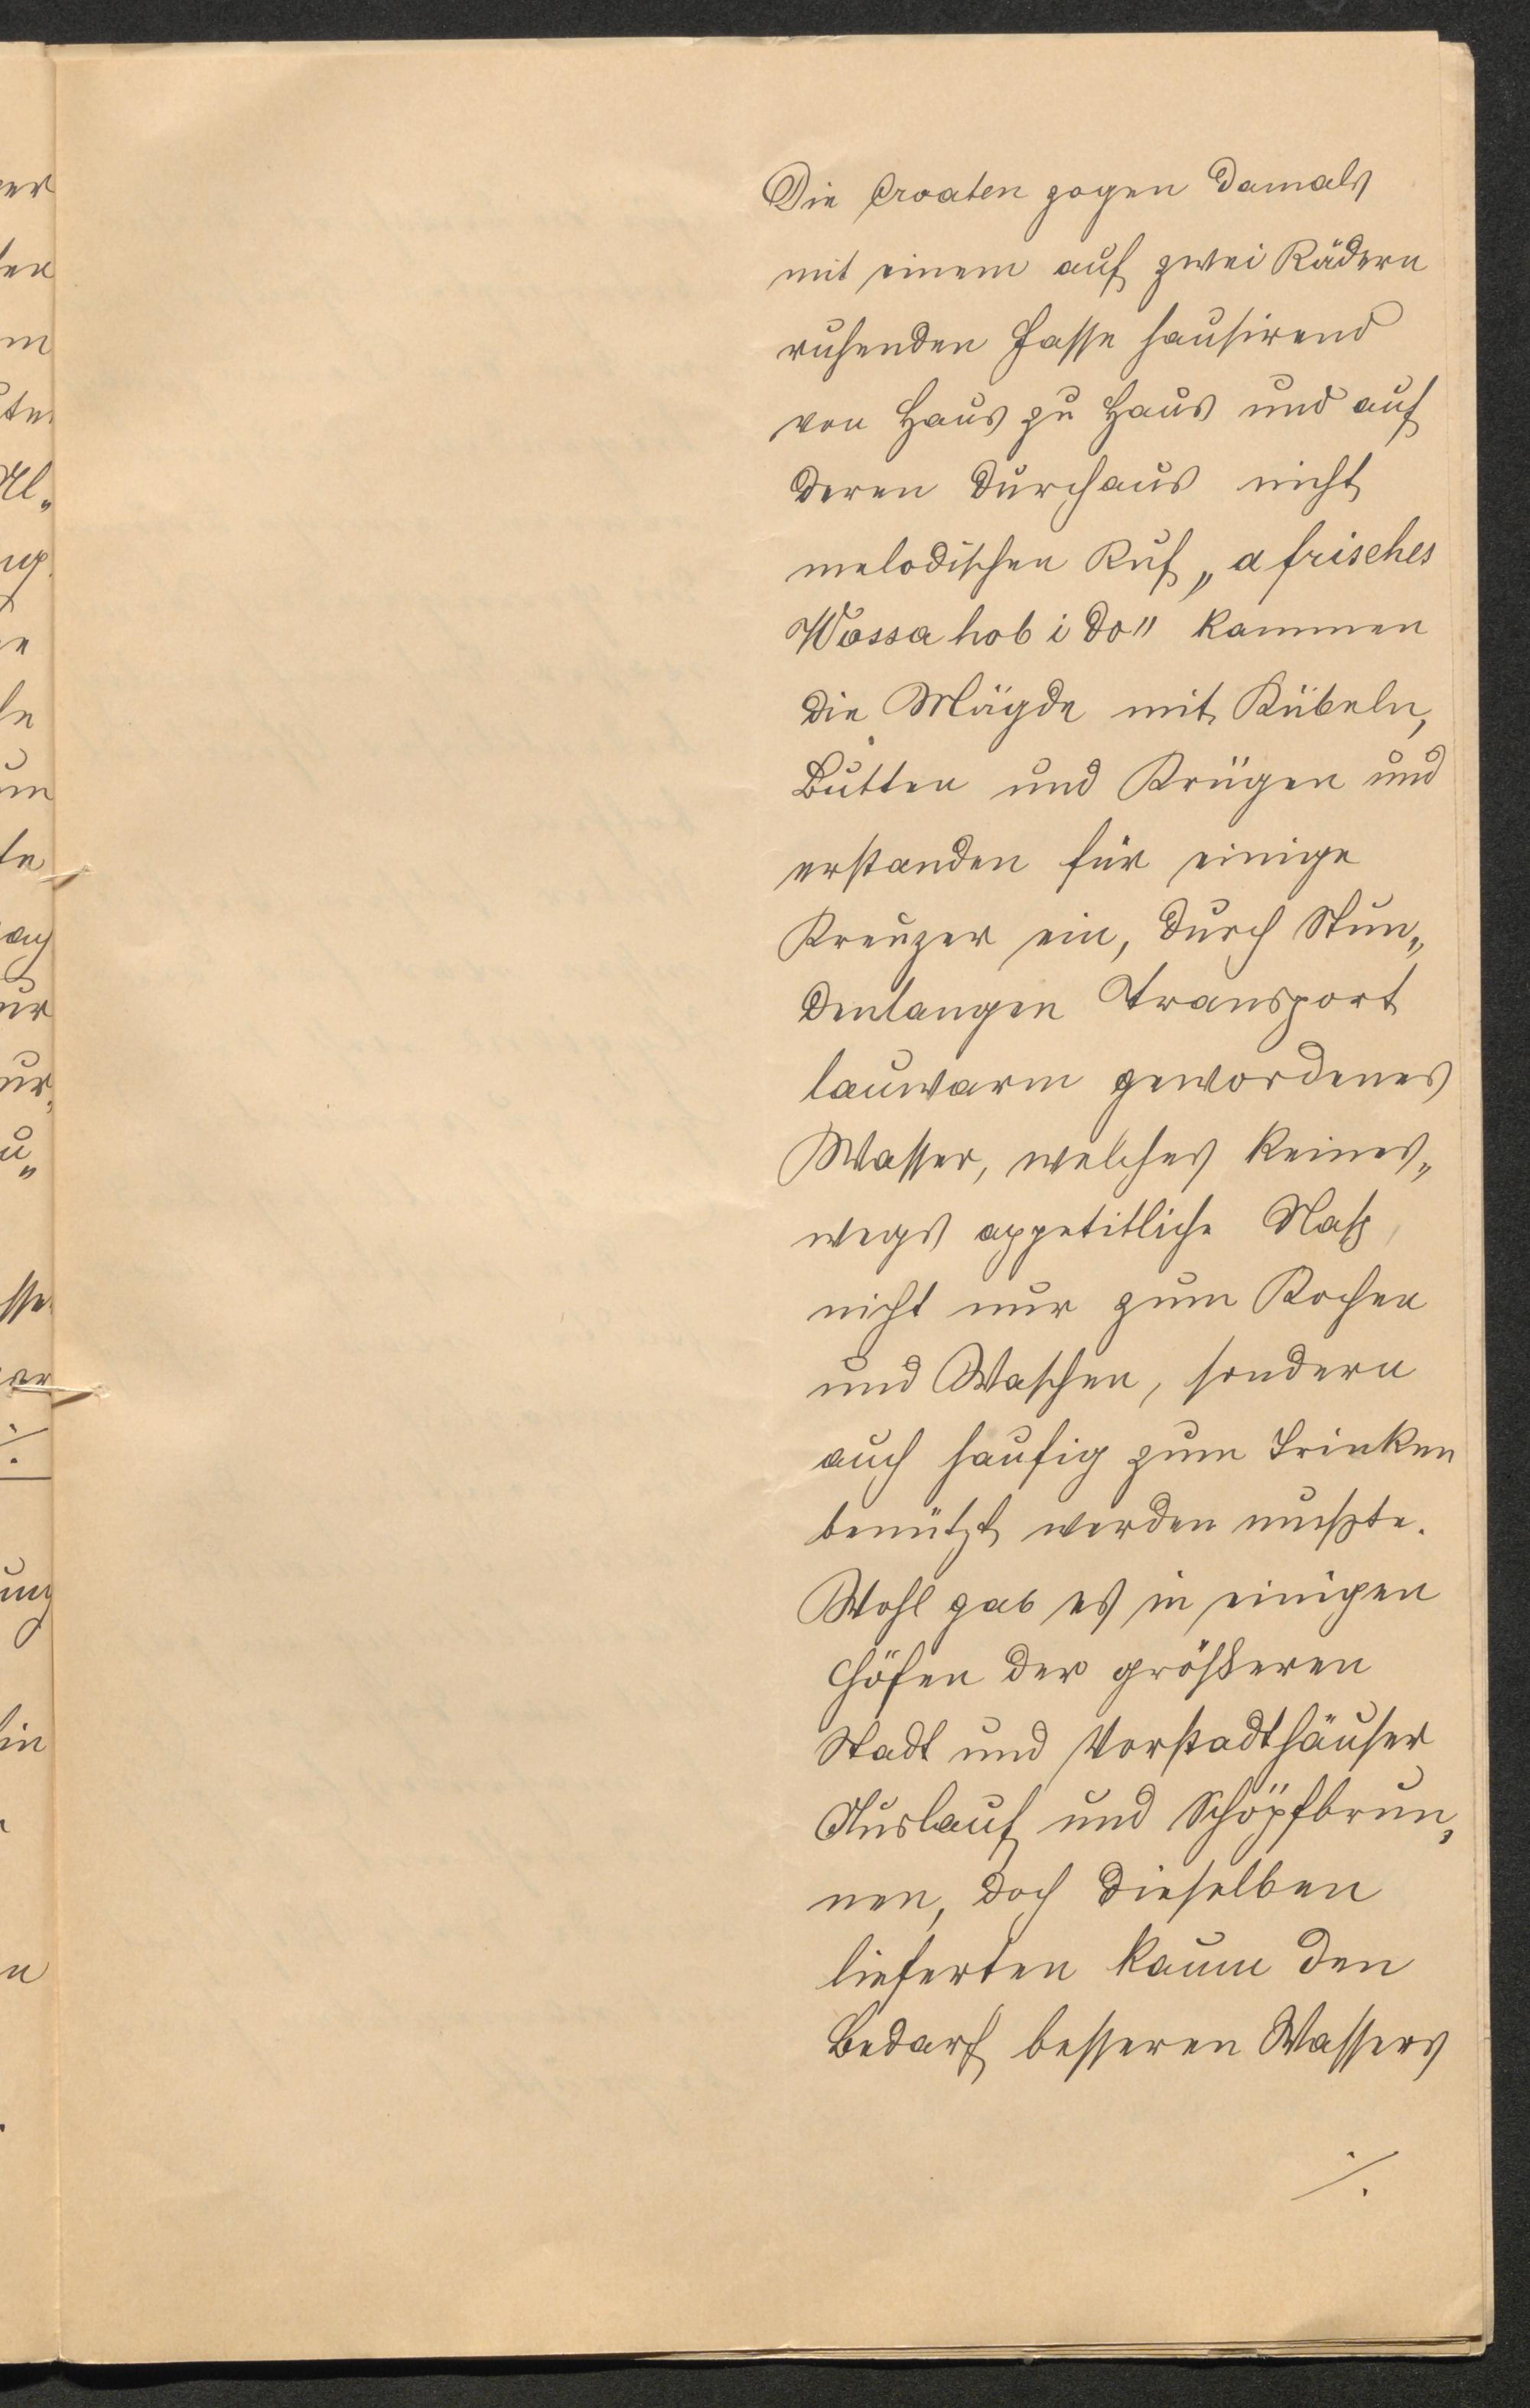 Die Croaten zogen damals
mit einem auf zwei Rädern
ruhenden Fasse hausirend
von Haus zu Haus und auf
deren durchaus nicht
melodischen Ruf „a frisches
Wossa hob i do" kammen
die Mägde mit Kübeln,
Butten und Krügen und
erstanden für einige
Kreuzer ein, durch Stun„
denlangen Transport
lauwarm gewordenes
Wasser, welches keines„
wegs appetitliche Naß
nicht nur zum Kochen
und Waschen, sondern
auch haufig zum Trinken
benützt werden mußte.
Wohl gab es in einigen
Höfen der größeren
Stadt und Vorstadthäuser
Auslauf und Schöpfbrun„
nen, doch dieselben
lieferten kaum den
Bedarf besseren Wassers
./.